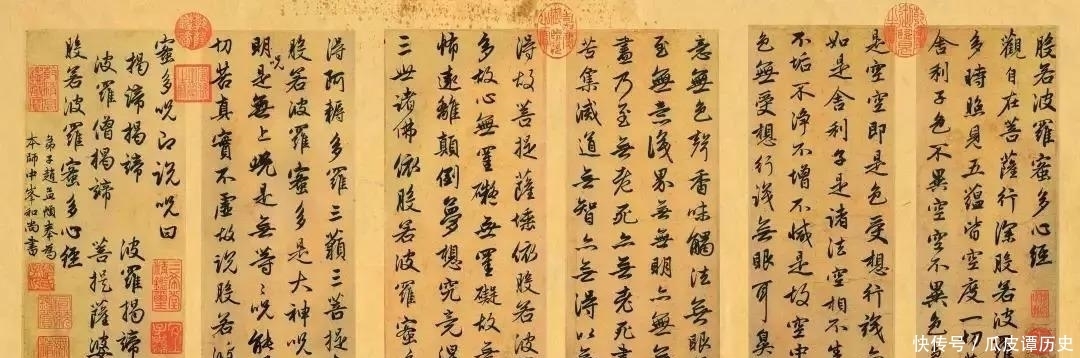 般若波羅蜜多心經
觀自在菩薩行深般若波
多時照見五蘊皆空度一切
舍利子色不異空空不異色
是空空即是色受想行識
如是舍利子是諸法空相不生
不垢不淨不增不減是故空中
色無受想行識無眼耳鼻
意無色聲香味觸法無眼
至無意識界無無明亦無
盡乃至無老死亦無老死
苦集滅道無智亦無得以
得故菩提薩埵依般若波
多故心無罣礙無罣礙故無
怖遠離顛倒夢想究竟涅
三世諸佛依般若波羅蜜
得阿耨多羅三藐三菩提
般若波羅蜜多是大神咒
明咒是無上咒是無等〻咒能
切苦真實不虛故說般若
蜜多咒即說咒曰
揭諦揭諦 波羅揭諦
波羅僧揭諦 菩提薩婆
般若波羅蜜多心經
弟子趙孟頫奉為
本師中峯和尚書
快传号 / 瓜皮谭历史